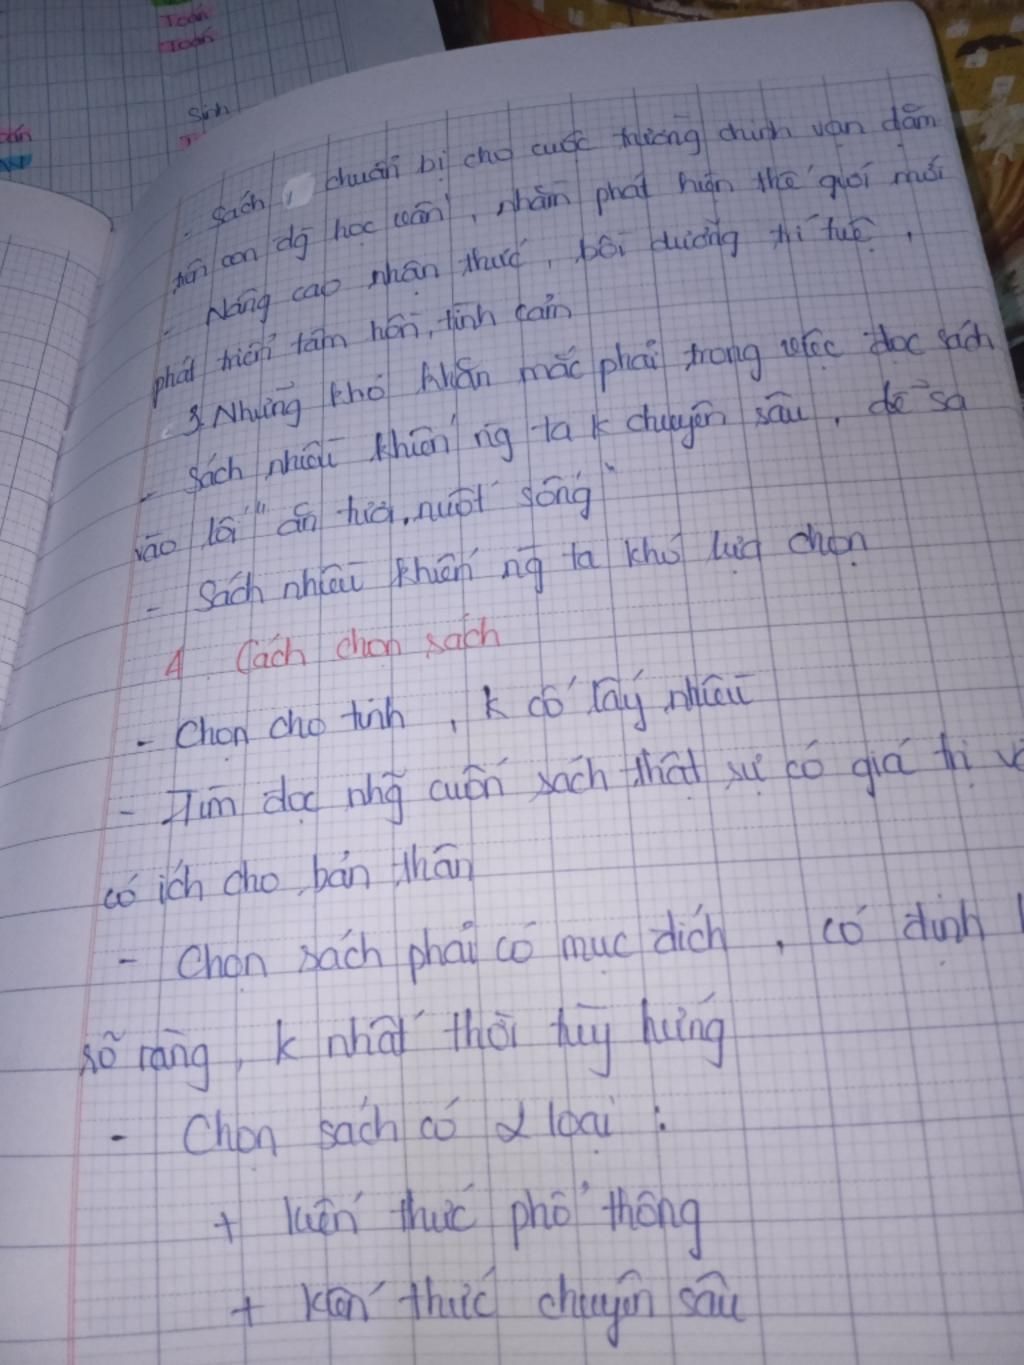 Toán
Toán
Sinh
- Sách, chuẩn bị cho cuộc trường chinh vạn dặm
trên con đg học vấn, nhằm phát hiện thế giới mới
- Nâng cao nhận thức, bồi dưỡng trí tuệ,
phát triển tâm hồn, tình cảm
3. Những khó khăn mắc phải trong việc đọc sách
- Sách nhiều khiến ng ta k chuyên sâu, dễ sa
vào lối "ăn tươi, nuốt sống"
- Sách nhiều khiến ng ta khó lựa chọn
4. Cách chọn sách
- Chọn cho tinh, k cố lấy nhiều
- Tìm đọc nhg cuốn sách thật sự có giá trị
có ích cho bản thân
- Chọn sách phải có mục đích, có định
rõ ràng, k nhất thời tùy hứng
- Chọn sách có 2 loại:
+ kiến thức phổ thông
+ kiến thức chuyên sâu